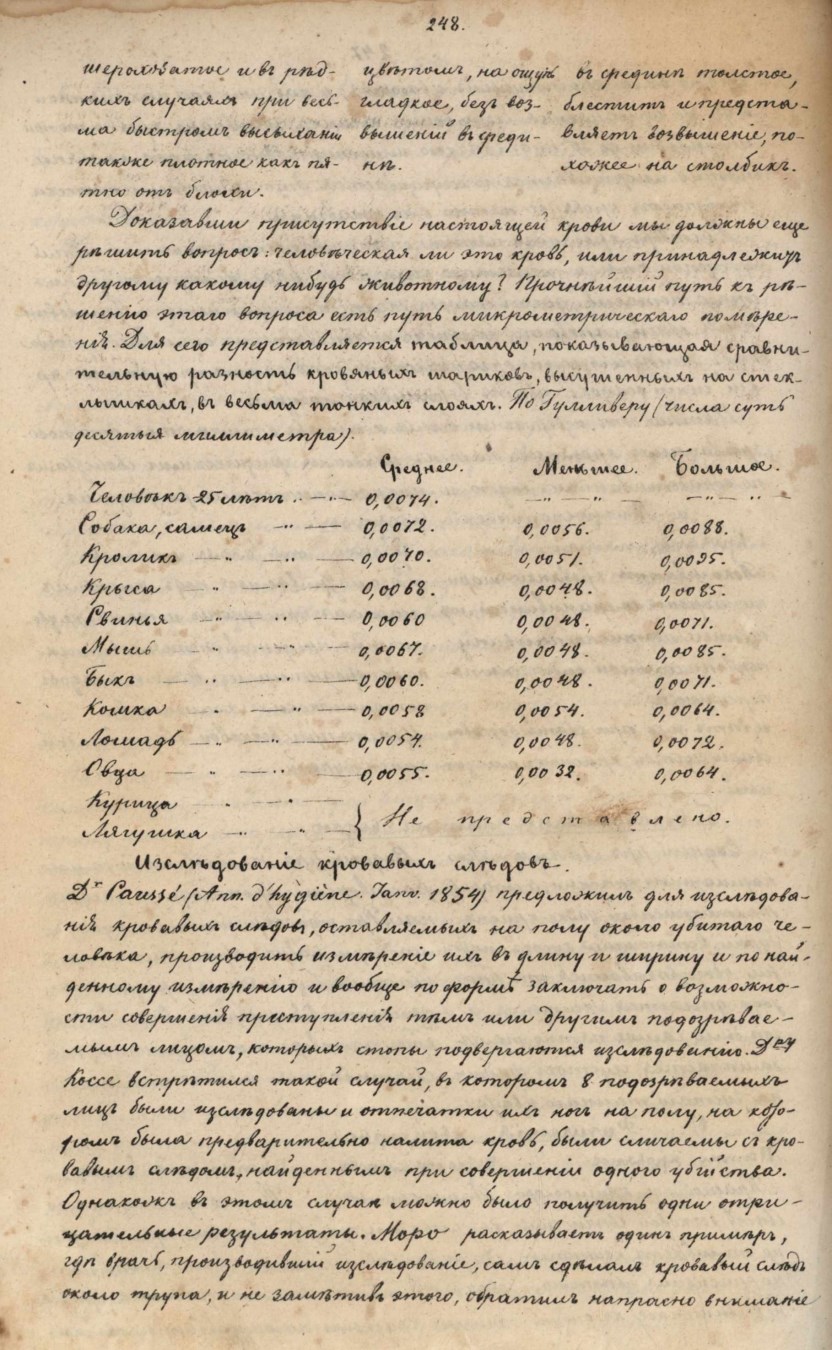 248.
шероховатое и въ рѣд- цвѣтомъ, на ощупь въ срединѣ толстое,
кихъ случаяхъ при весь- гладкое, безъ воз- блеститъ и предста-
ма быстромъ высыханіи вышеній въ среди- вляетъ возвышеніе, по-
также плотное какъ пя- нѣ. хожее на столбикъ.
тно отъ блохи.
Доказавши присутствіе настоящей крови мы должны еще
рѣшить вопросъ: человѣческая ли это кровь, или принадлежитъ
другому какому нибудь животному? Прочнѣйшій путь къ рѣ-
шенію этаго вопроса есть путь микрометрическаго помѣре-
нія. Для сего представляется таблица, показывающая сравни-
тельную разность кровяныхъ шариковъ, высушенныхъ на стек-
лышкахъ, въ весьма тонкихъ слояхъ. По Гулливеру (числа суть
десятыя миллиметра).
Среднее. Меньшее. Большое.
Человѣкъ 25 лѣтъ .. — " — 0,0074. — " — " — — " — " —
Собака, самецъ — " — 0,0072. 0,0056. 0,0088.
Кроликъ — " — " — 0,0070. 0,0051. 0,0095.
Крыса — " — " — 0,0068. 0,0048. 0,0085.
Свинья — " — " — 0,0060 0,0048. 0,0071.
Мышь — " — " — 0,0067. 0,0048. 0,0085.
Быкъ — " — " — 0,0060. 0,0048. 0,0071.
Кошка — " — " — 0,0058 0,0054. 0,0064.
Лошадь — " — " — 0,0054. 0,0048. 0,0072.
Овца — " — " — 0,0055. 0,0032. 0,0064.
Курица — " — " —
Лягушка — " — " — { Не представлено.
Изслѣдованіе кровавыхъ слѣдовъ.
Dr Caussé (Ann. d'hygiène. Janv. 1854) предложилъ для изслѣдова-
нія кровавыхъ слѣдовъ, оставляемыхъ на полу около убитаго че-
ловѣка, производить измѣреніе ихъ въ длину и ширину и по най-
денному измѣренію и вообще по формѣ заключать о возможно-
сти совершенія преступленія тѣмъ или другимъ подозрѣвае-
мымъ лицомъ, которыхъ стопы подвергаются изслѣдованію. Dру
Коссе встрѣтился такой случай, въ которомъ 8 подозрѣваемыхъ
лицъ были изслѣдованы и отпечатки ихъ ногъ на полу, на кото-
ромъ была предварительно налита кровь, были сличаемы съ кро-
вавымъ слѣдомъ, найденнымъ при совершеніи одного убійства.
Однакожъ въ этомъ случаѣ можно было получить одни отри-
цательные результаты. Моро расказываетъ одинъ примѣръ,
гдѣ врачъ, производившій изслѣдованіе, самъ сдѣлалъ кровавый слѣдъ
около трупа, и не замѣтивъ этого, обратилъ напрасно вниманіе